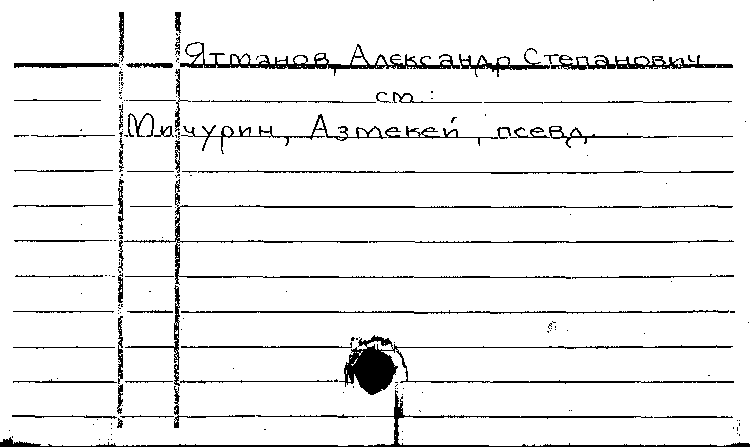 Ятманов, Александр Степанович
см:
Мичурин, Азмекей, псевд.